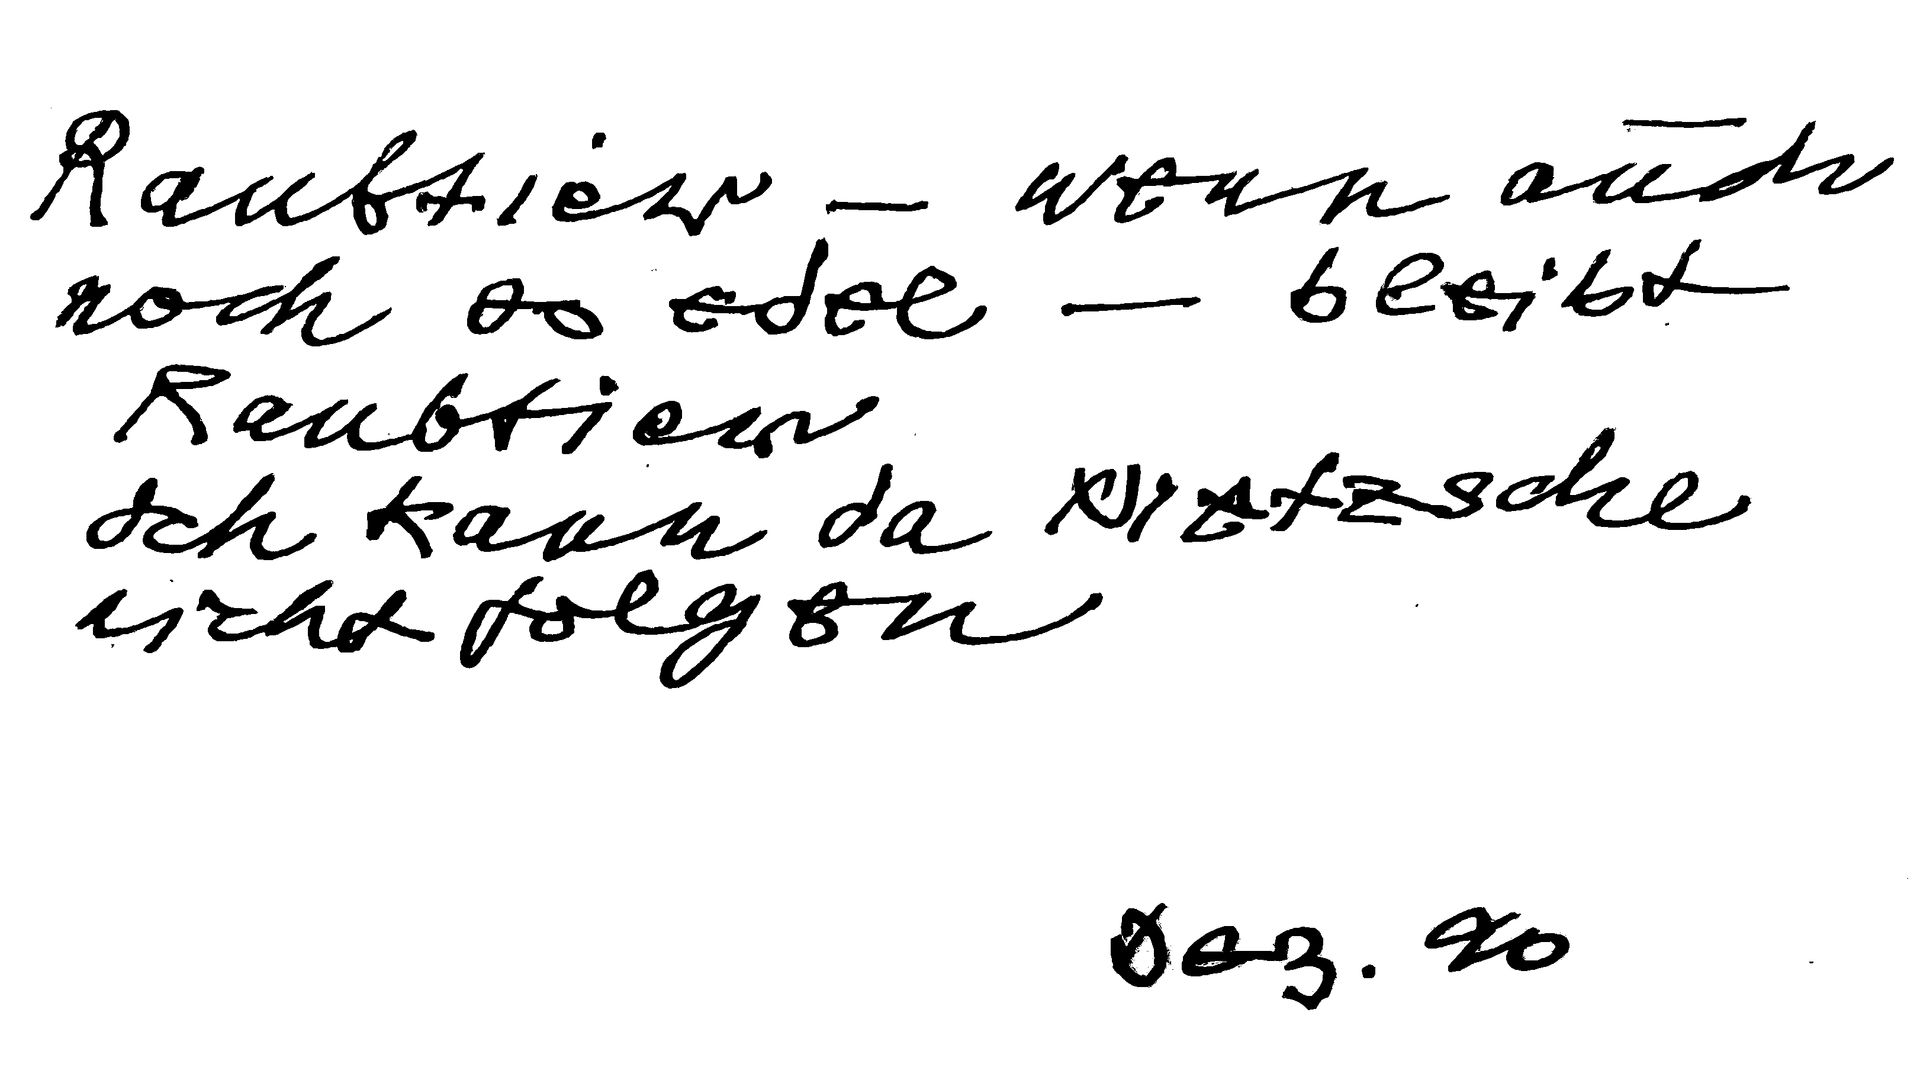 Raubtier — wenn auch
noch so edel — bleibt
Raubtier
Ich kann da Nietzsche
nicht folgen
Dez. 90